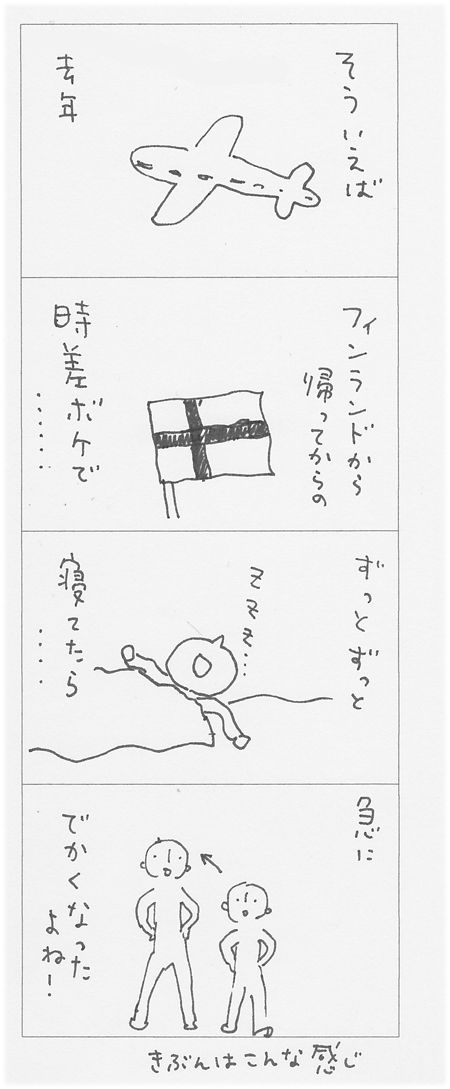 そういえば
去年
フィンランドから
帰ってからの
時差ボケで
‥‥‥
ずっとずっと
ZZZ…
寝てたら
‥‥
急に
でかくなった
よね！
きぶんはこんな感じ